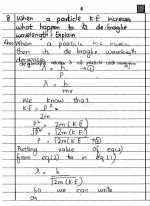 6
8 When a particle K.E increases
what happen to its de-broglie
wavelength? Explain
Ans When a particle K.E increases
then its de broglie wavelength
decreases
λ = h / p → ①
λ = h / mv
We know that
K.E = P² / 2m
P² = 2m (K.E)
√P² = √2m (K.E)
P = √2m (K.E) → ②
Putting value of eq(2)
from eq(2) in eq(1)
λ = h / √2m(K.E)
So we can write
as